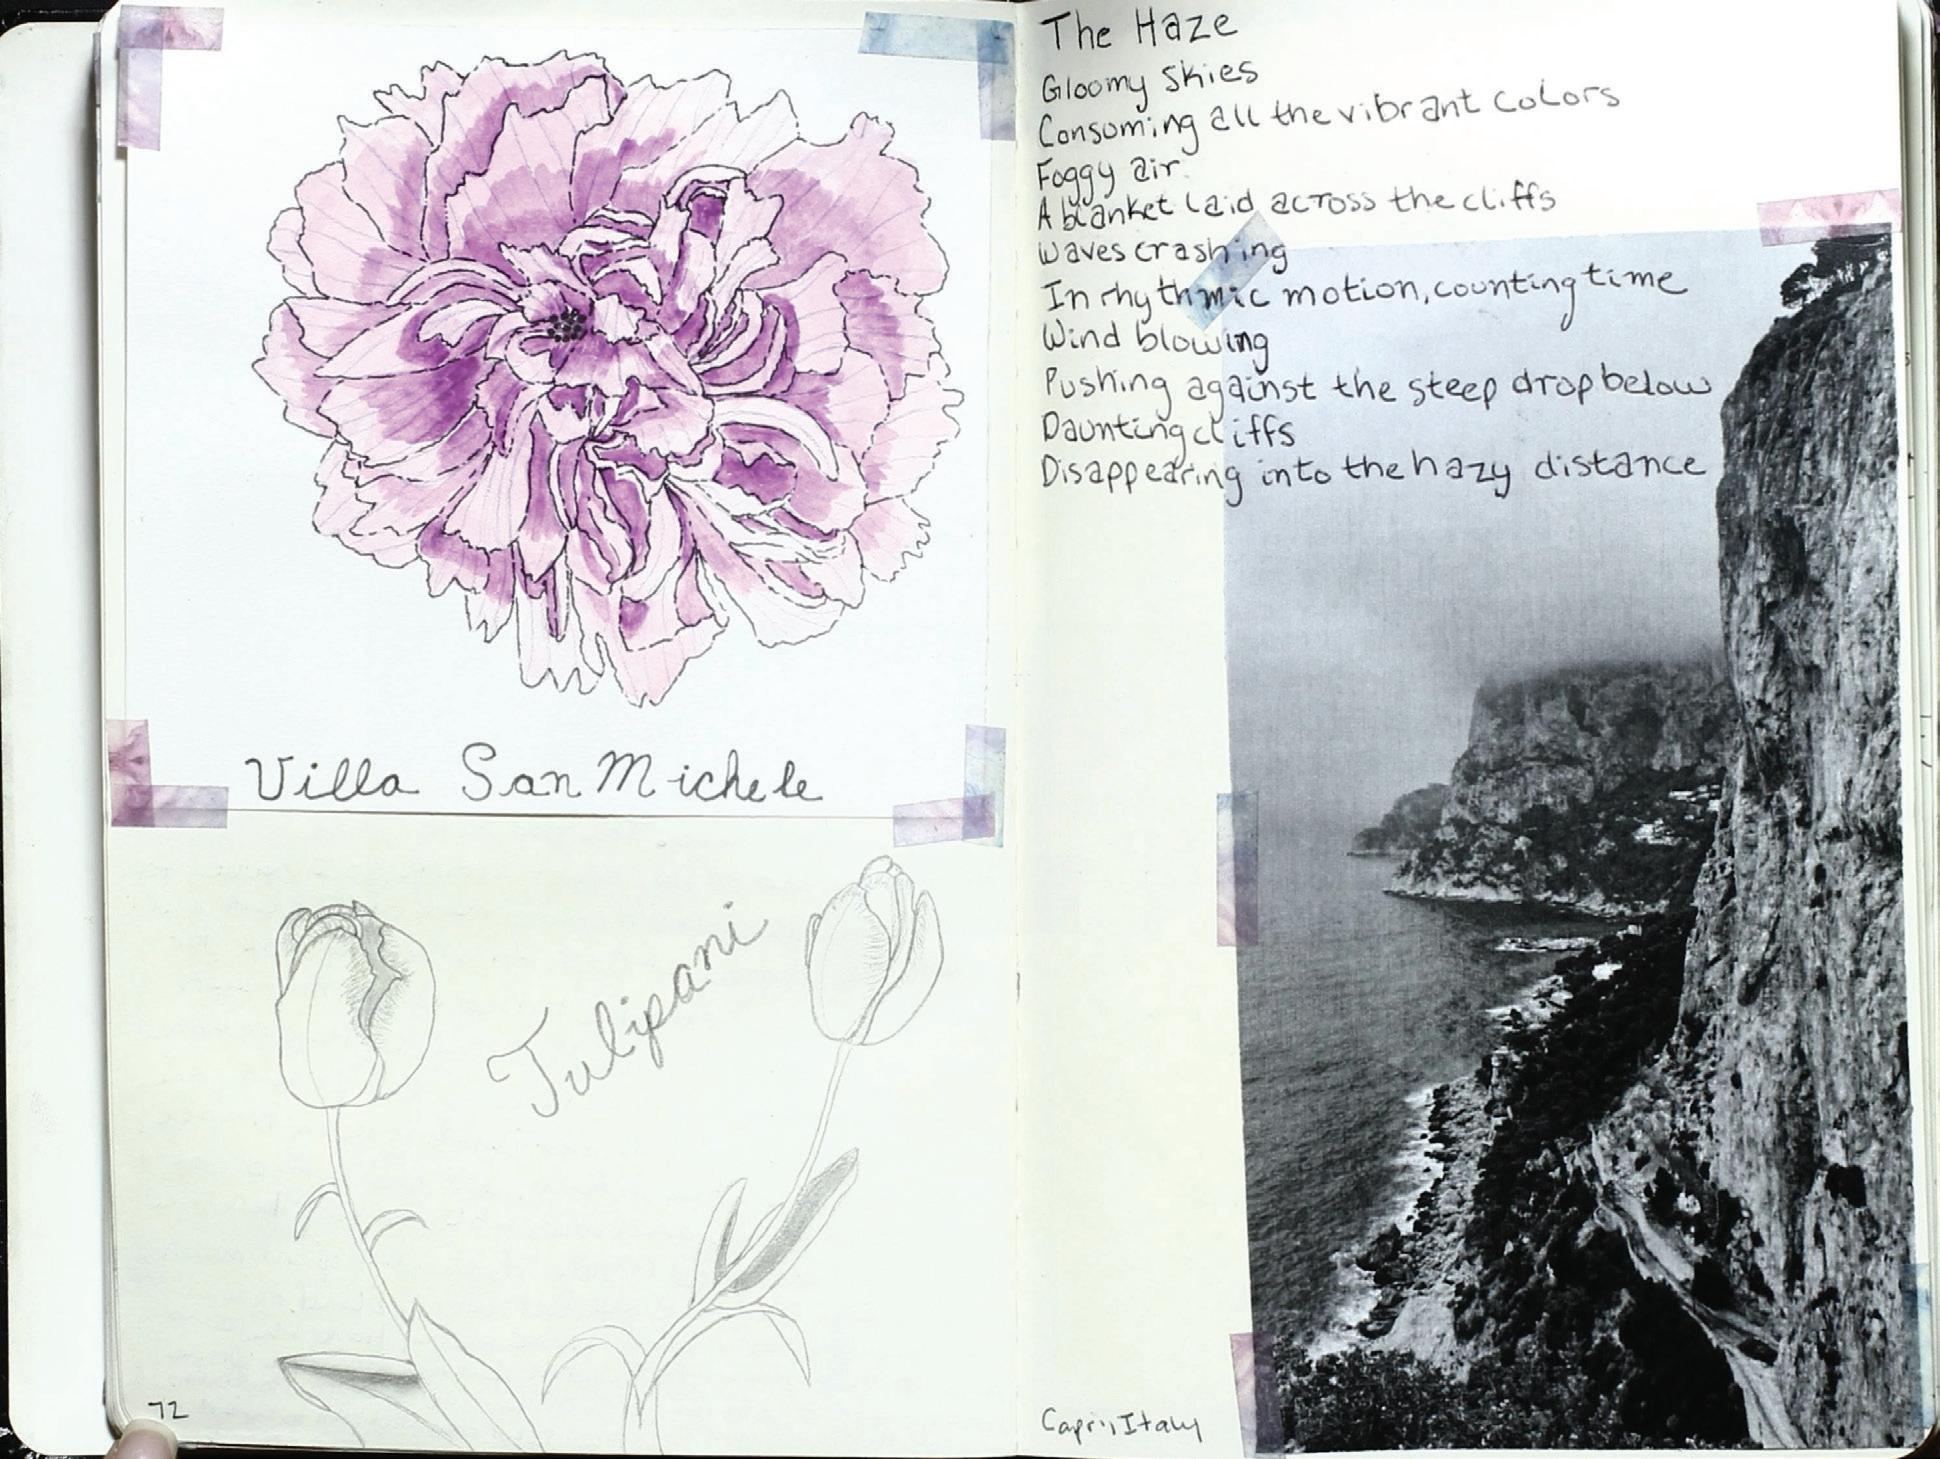 Villa San Michele
Tulipani
72
The Haze
Gloomy Skies
Consuming all the vibrant colors
Foggy air
A blanket laid across the cliffs
Waves crashing
In rhythmic motion, counting time
Wind blowing
Pushing against the steep drop below
Daunting cliffs
Disappearing into the hazy distance
Capri, Italy